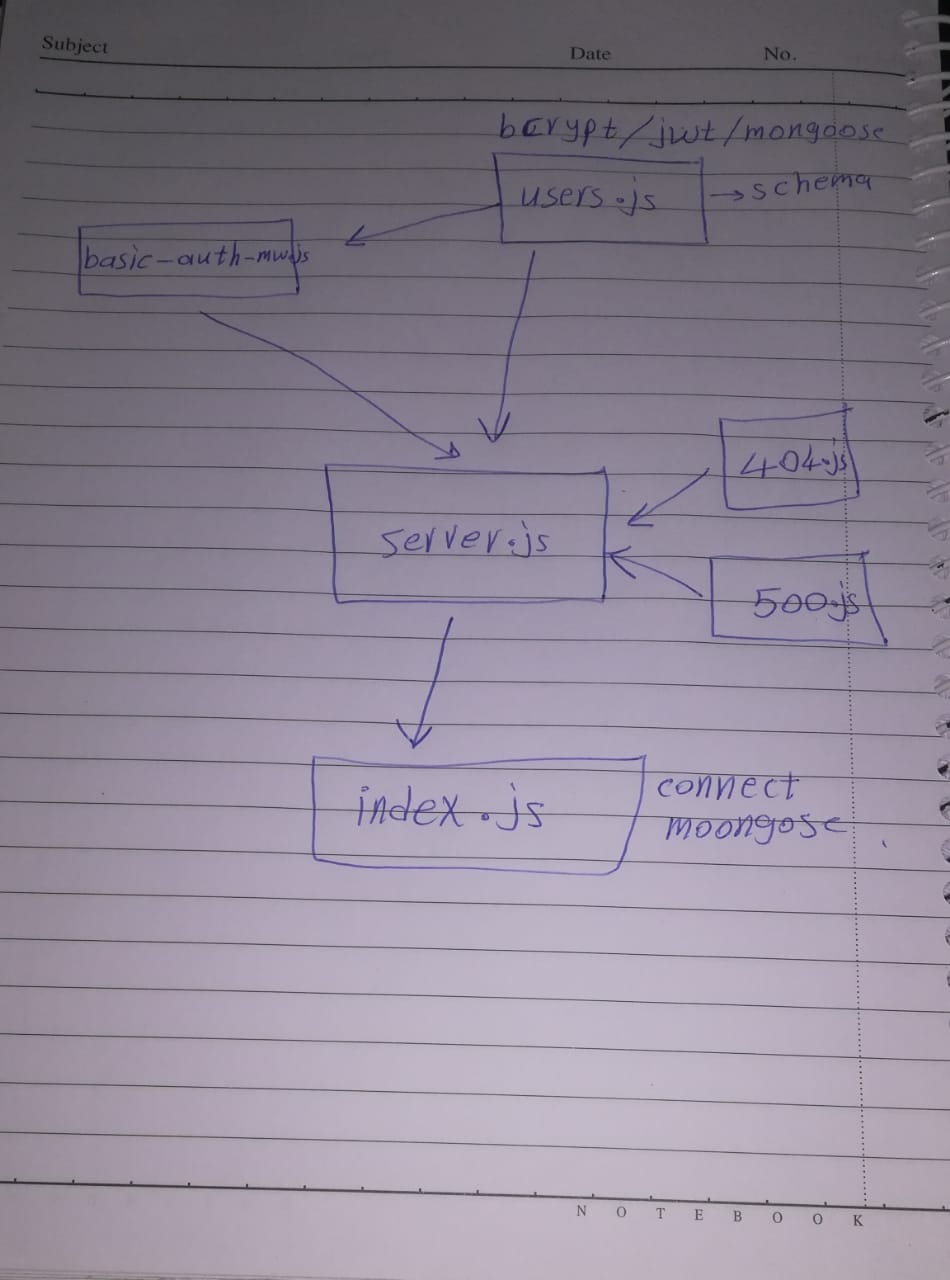 Subject
Date No.
bcrypt/jwt/mongoose
users.js → schema
basic-auth-mw.js
404.js
server.js
500.js
index.js
connect
moongose
NOTEBOOK